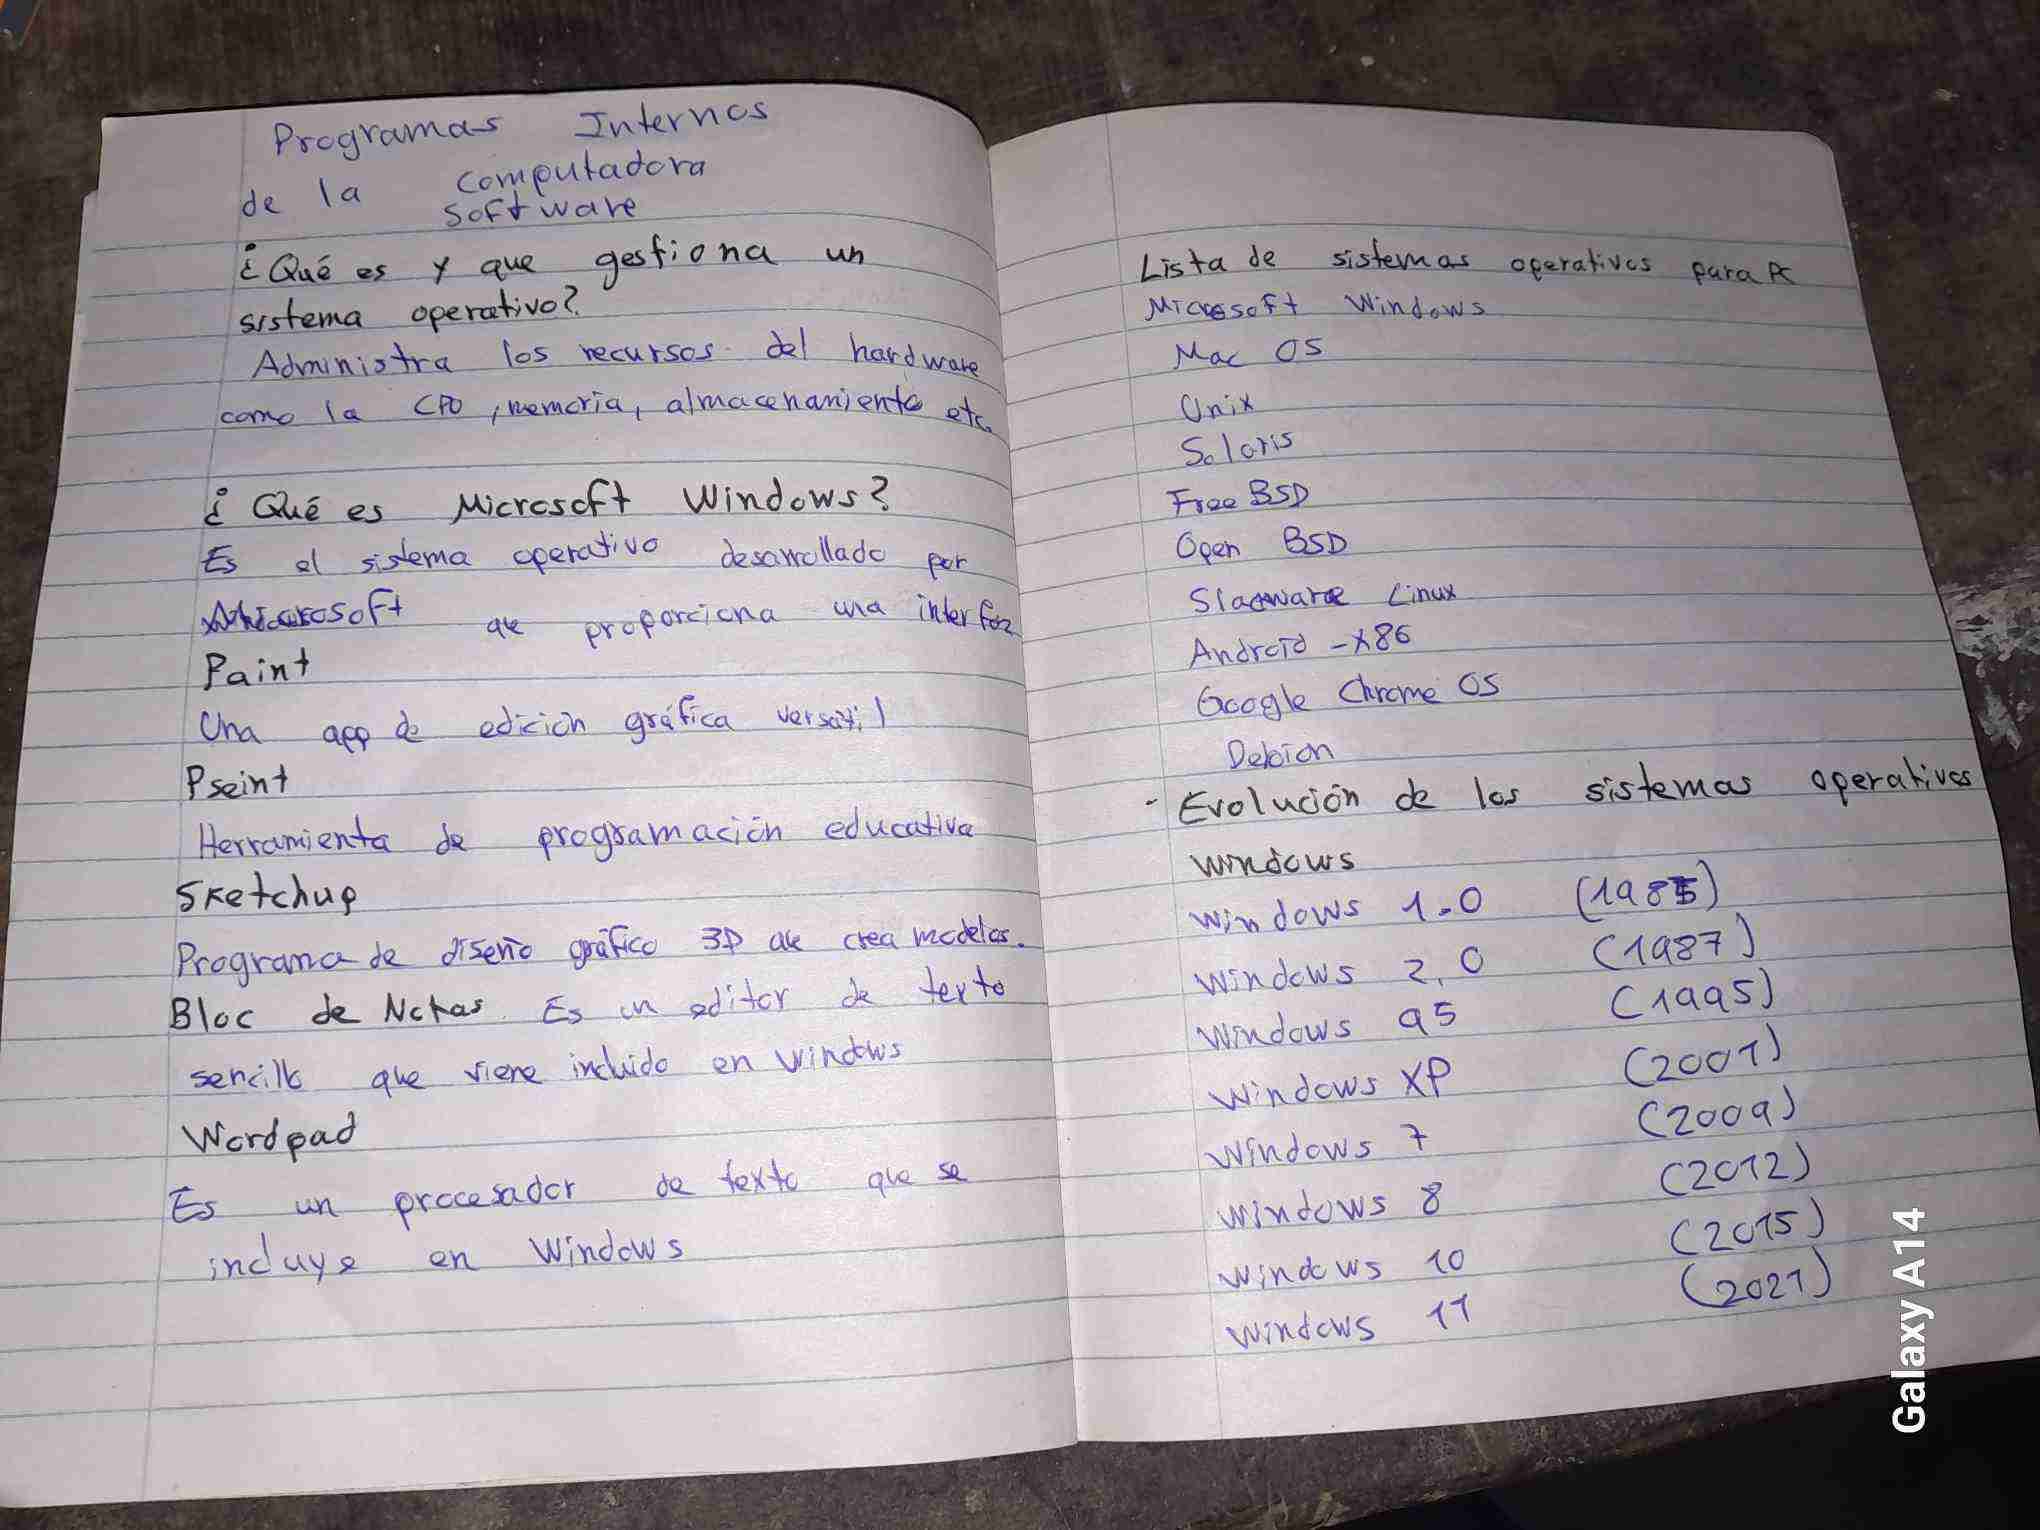 Programas Internos
de la computadora
software
¿Qué es y que gestiona un
sistema operativo?
Administra los recursos del hardware
como la CPU, memoria, almacenamiento etc.
¿Qué es Microsoft Windows?
Es el sistema operativo desarrollado por
Microsoft que proporciona una interfaz
Paint
Una app de edición gráfica versatil
Pseint
Herramienta de programación educativa
Sketchup
Programa de diseño gráfico 3D que crea modelos.
Bloc de Notas. Es un editor de texto
sencillo que viene incluido en Windows
Wordpad
Es un procesador de texto que se
incluye en Windows
Lista de sistemas operativos para PC
Microsoft Windows
Mac OS
Unix
Solaris
Free BSD
Open BSD
Slackware Linux
Android -x86
Google Chrome OS
Debian
- Evolución de los sistemas operativos
windows
windows 1.0 (1985)
windows 2.0 (1987)
windows 95 (1995)
windows XP (2001)
windows 7 (2009)
windows 8 (2012)
windows 10 (2015)
windows 11 (2021)
Galaxy A14